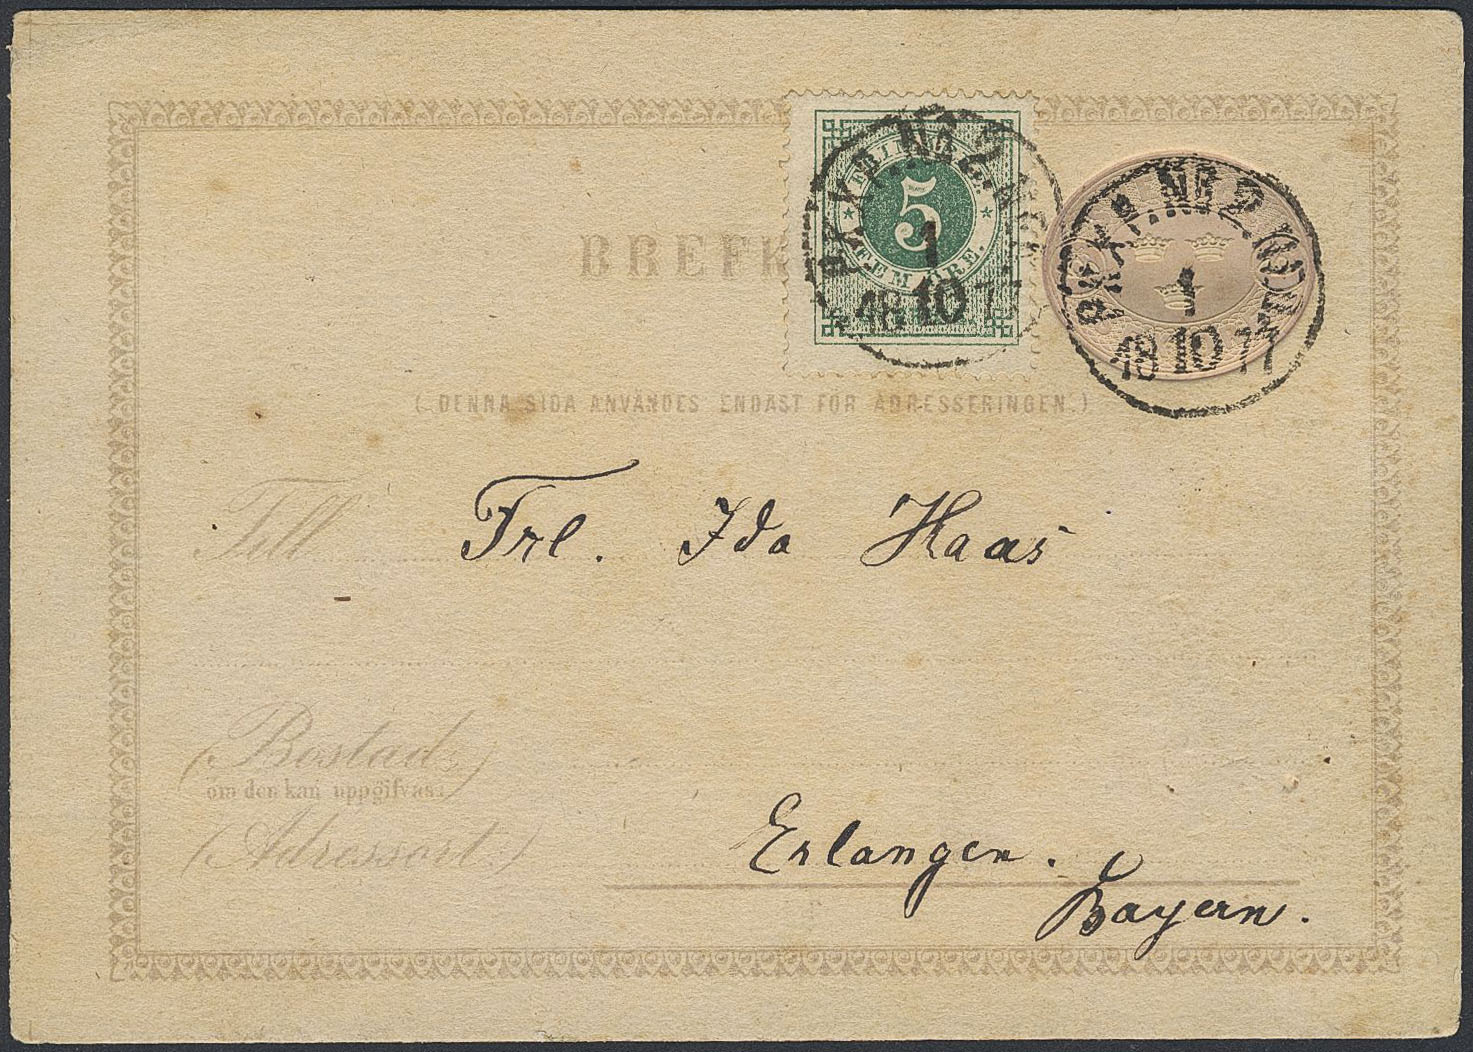 BREFK
(DENNA SIDA ANVÄNDES ENDAST FÖR ADRESSERINGEN.)
5
FEM ÖRE.
PKXP. Nr 2
1
18 10 77
PKXP. Nr 2
1
18 10 77
Till Frl. Ida Haas
(Bostad,
om den kan uppgifvas.)
(Adressort.) Erlangen.
Bayern.